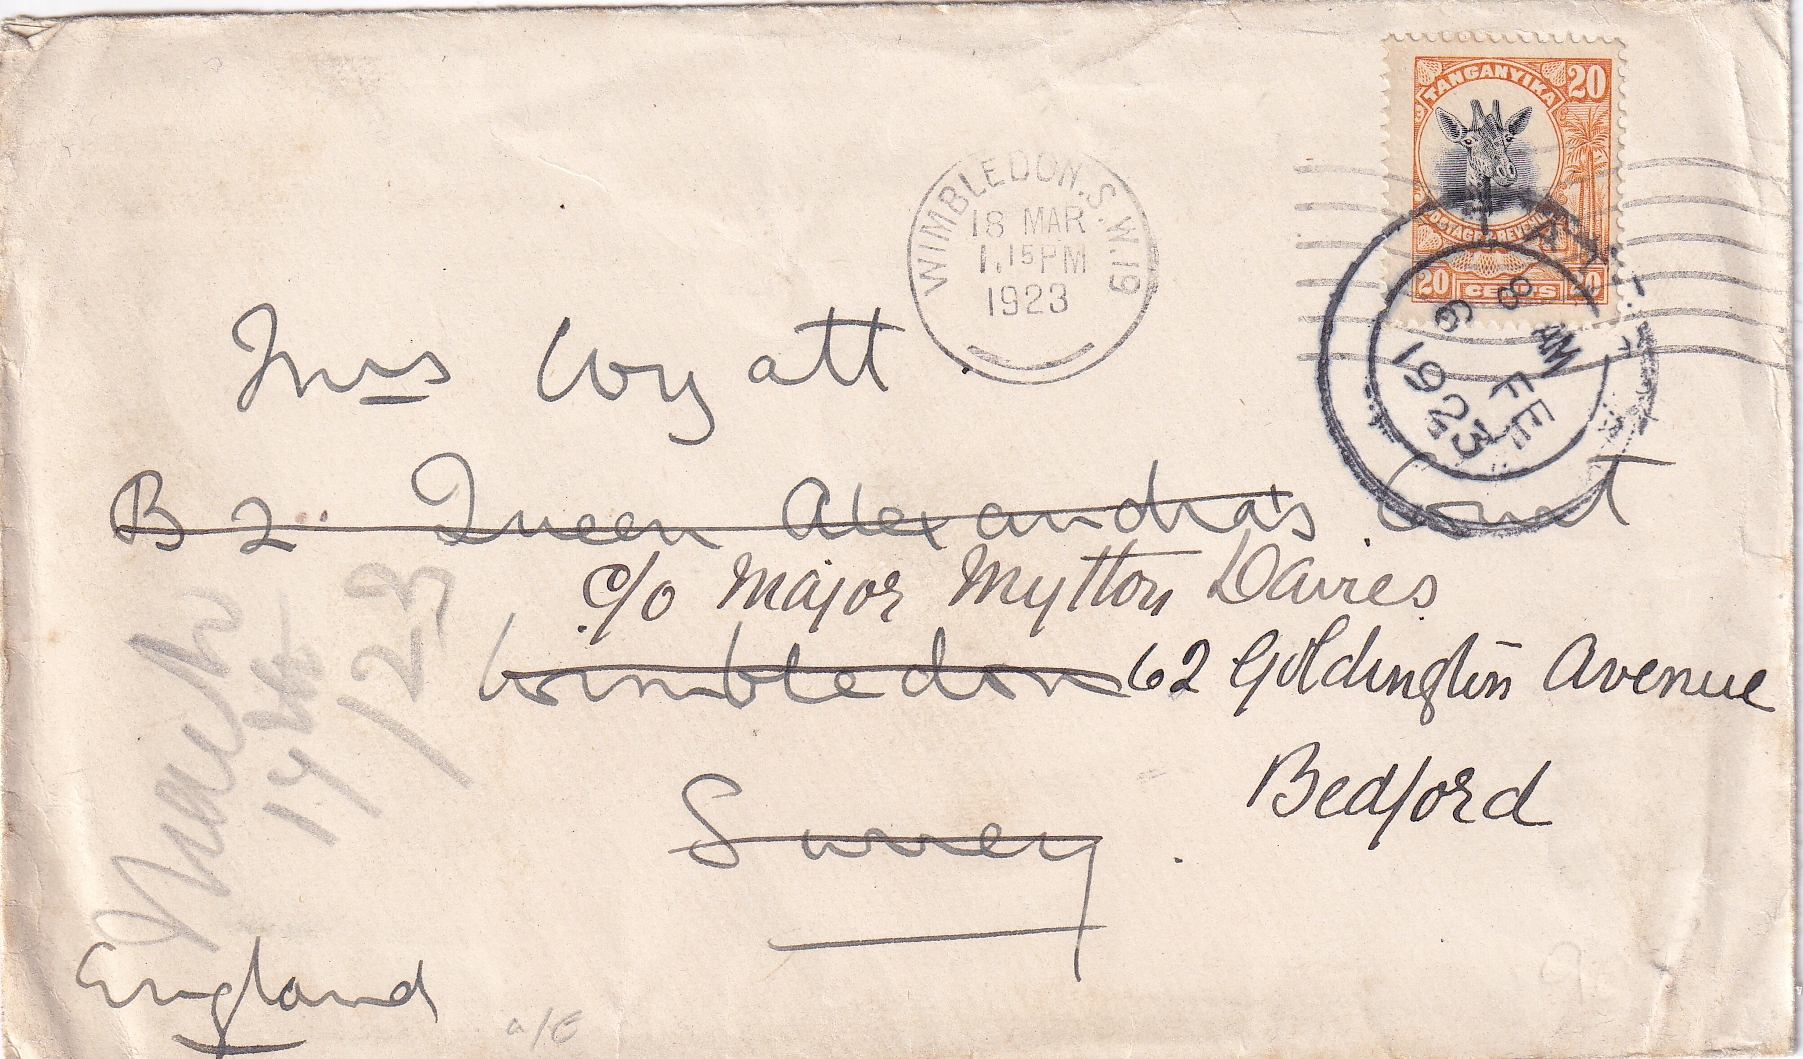 TANGANYIKA 20
POSTAGE & REVENUE
20 CENTS 20
WIMBLEDON.S.W.19
18 MAR
1.15PM
1923
8 AM
6 FE
1923
Mrs Wyatt
B 2 Queen Alexandra's Court
c/o Major Mytton Davies
Wimbledon 62 Goldington Avenue
Surrey
Bedford
March
17th
/23
England
a/E